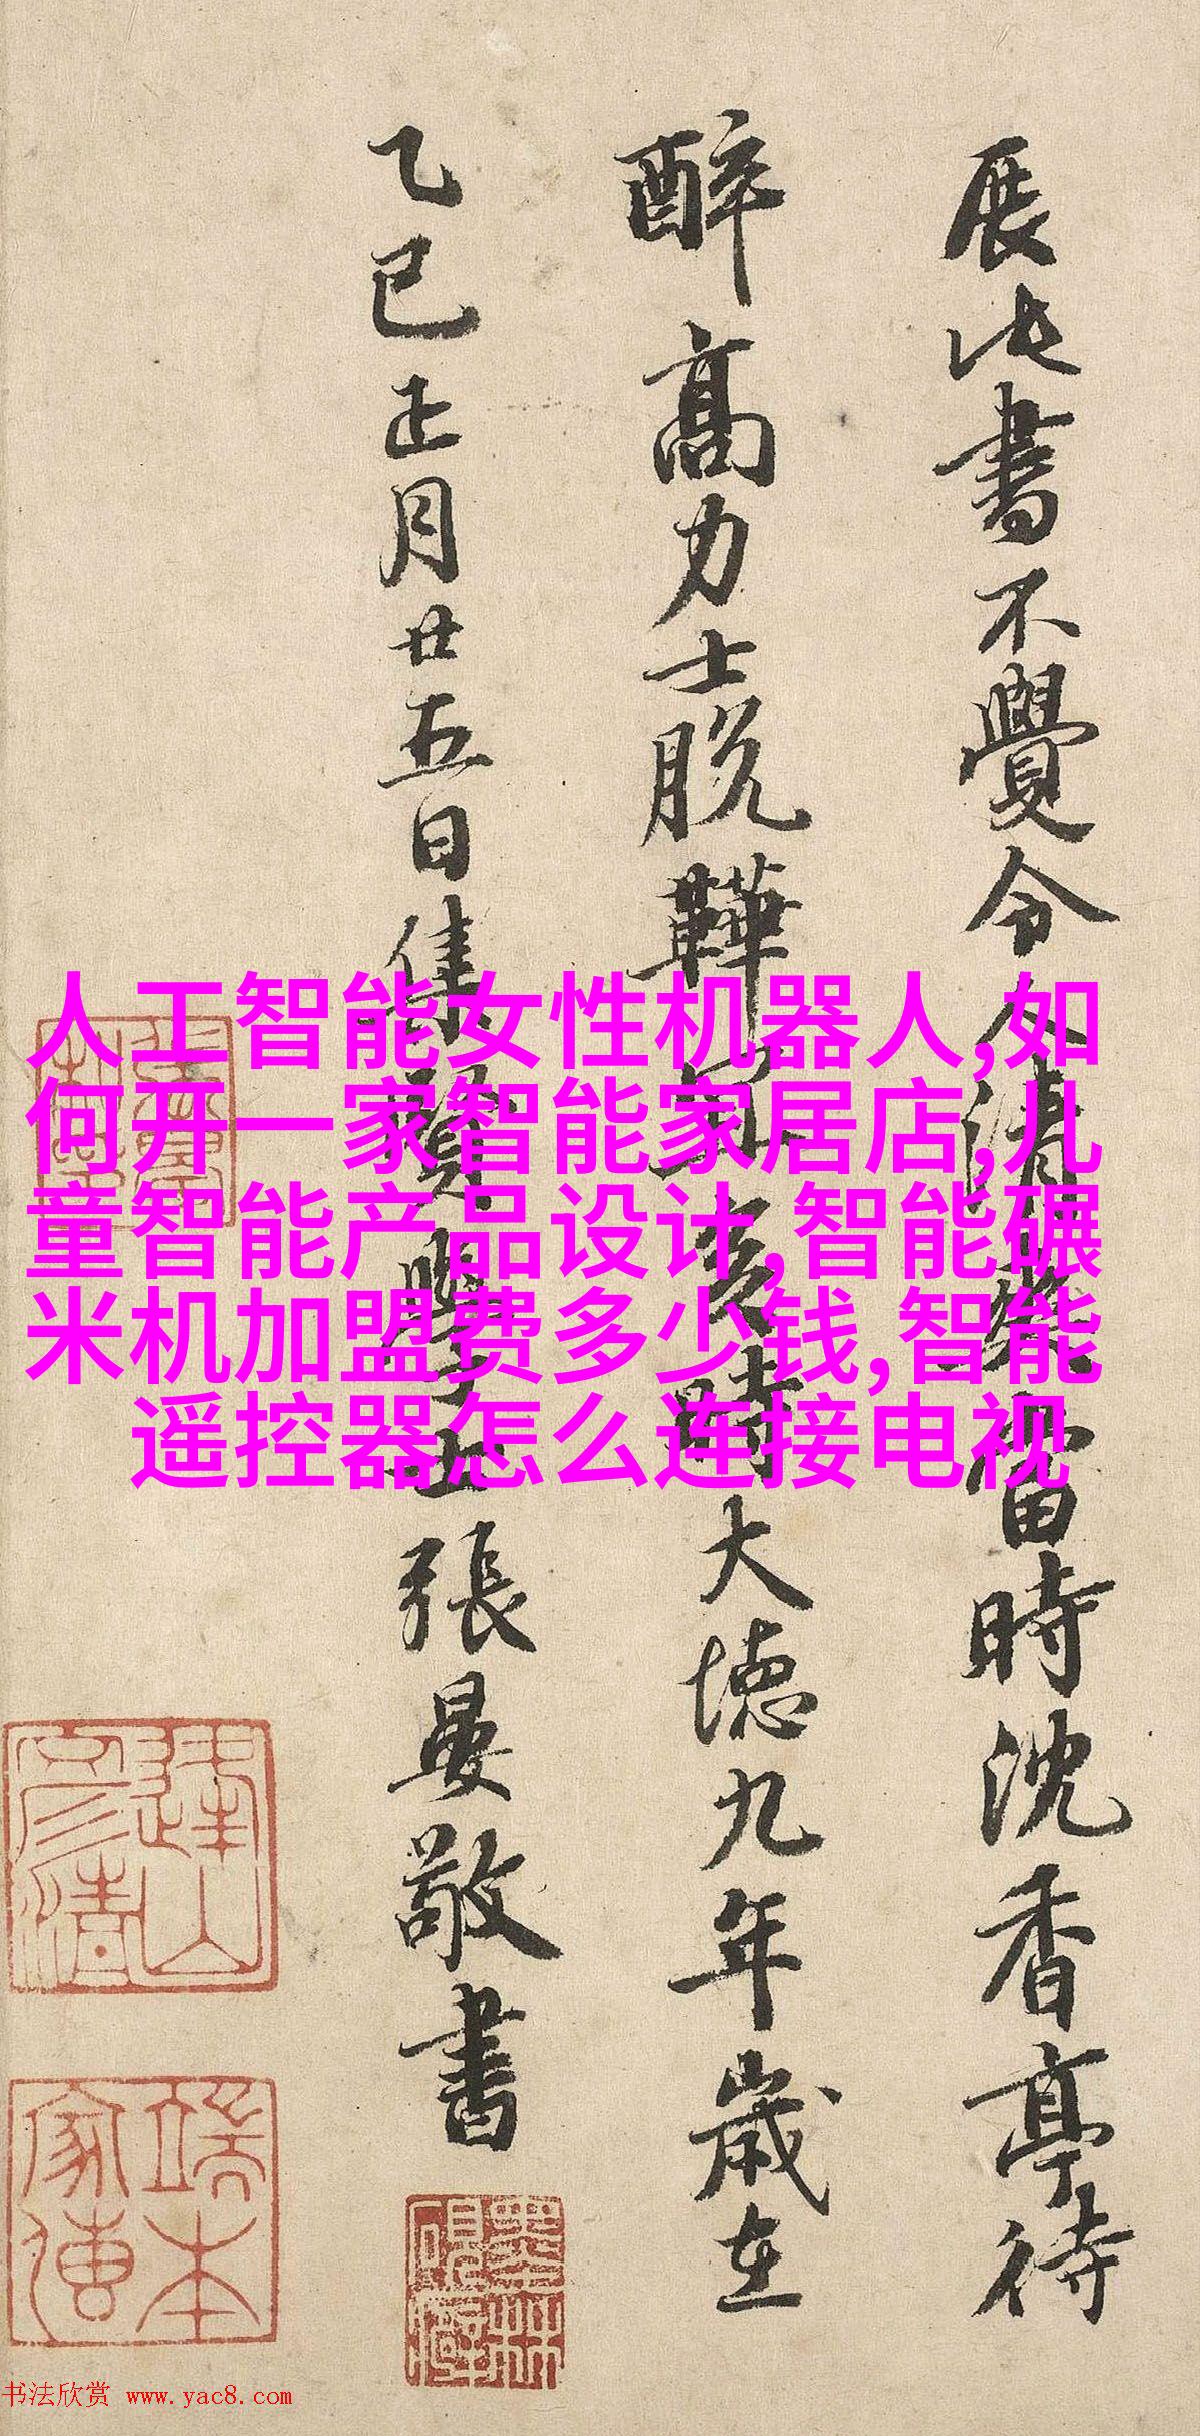 展此書不覺令人清當時沈香亭待
醉高力士脫鞾時大德九年歲在
乙巳正月廿五日集賢學士張晏敬書
人工智能女性机器人,如
何开一家智能家居店,儿
童智能产品设计,智能碾
米机加盟费多少钱,智能
遥控器怎么连接电视
书法欣赏 www.yac8.com